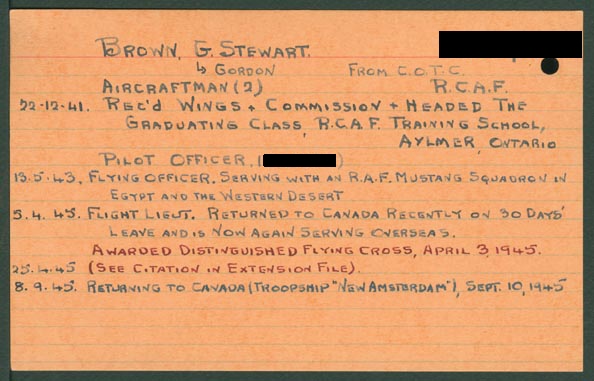 BROWN, G. STEWART.
↳ GORDON FROM C.O.T.C.
AIRCRAFTMAN (2) R.C.A.F.
22-12-41. REC'D WINGS + COMMISSION + HEADED THE
GRADUATING CLASS, R.C.A.F. TRAINING SCHOOL,
AYLMER, ONTARIO
PILOT OFFICER, ( )
13.5.43, FLYING OFFICER. SERVING WITH AN R.A.F. MUSTANG SQUADRON IN
EGYPT AND THE WESTERN DESERT
5.4.45. FLIGHT LIEUT. RETURNED TO CANADA RECENTLY ON 30 DAYS'
LEAVE AND IS NOW AGAIN SERVING OVERSEAS.
AWARDED DISTINGUISHED FLYING CROSS, APRIL 3, 1945.
25.4.45 (SEE CITATION IN EXTENSION FILE).
8.9.45. RETURNING TO CANADA (TROOPSHIP "NEW AMSTERDAM"), SEPT. 10, 1945